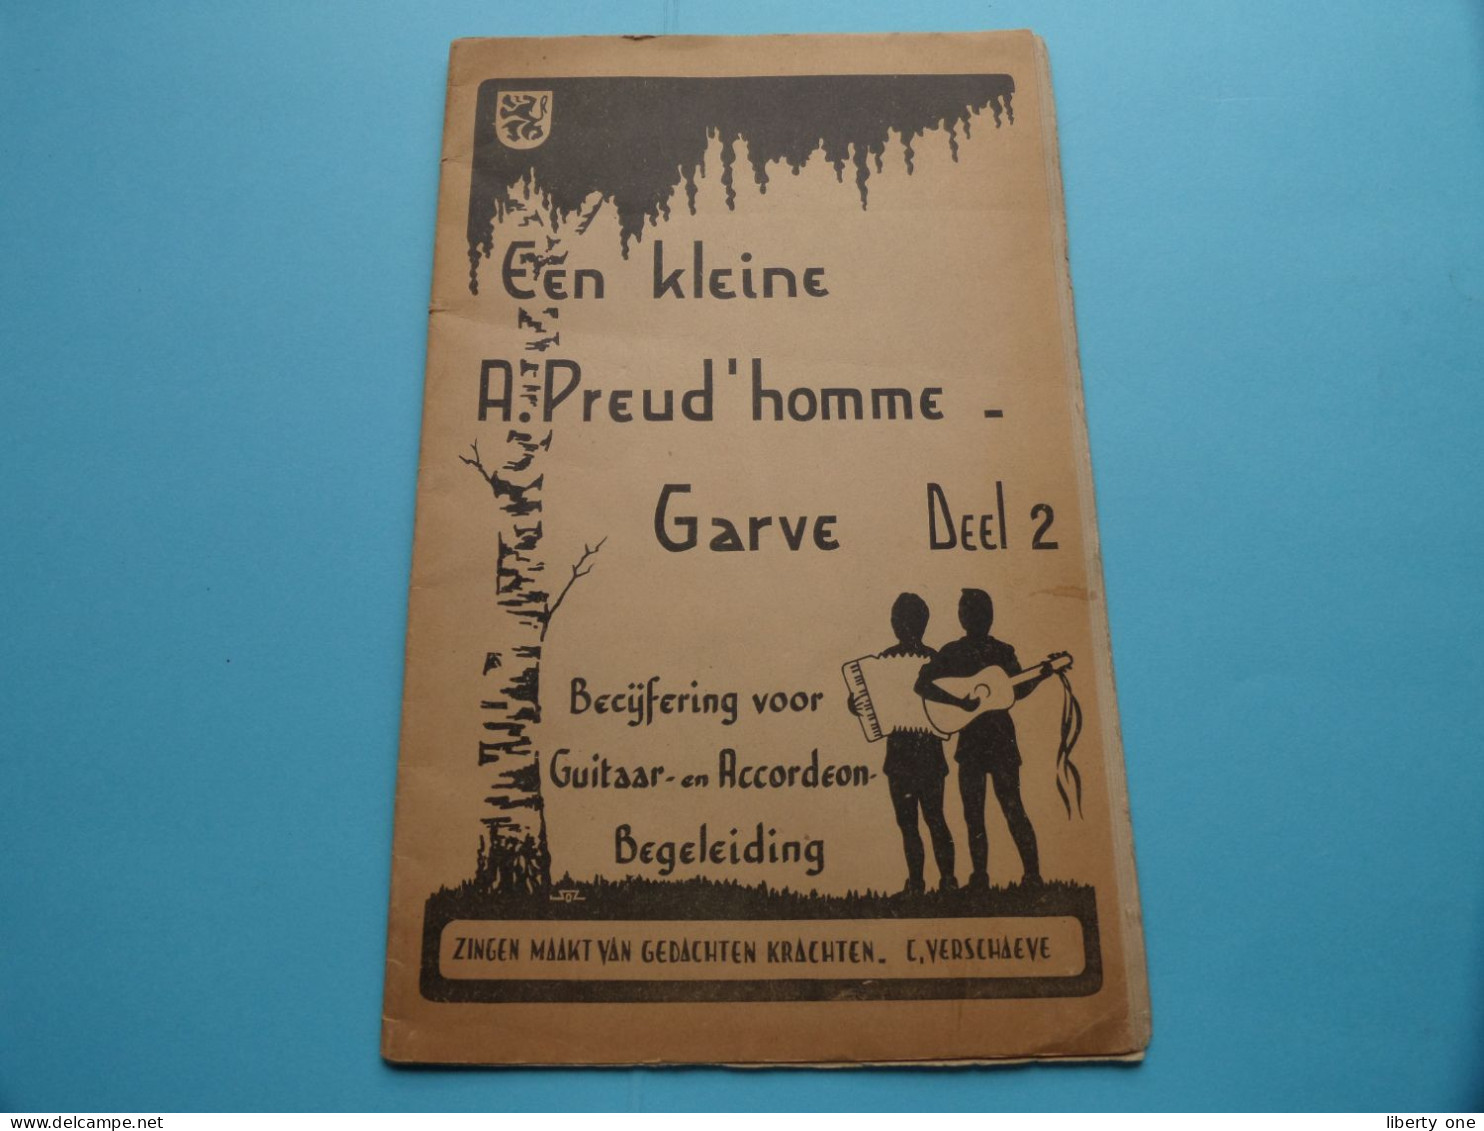 Een kleine
A. Preud'homme -
Garve Deel 2
Becijfering voor
Guitaar- en Accordeon-
Begeleiding
ZINGEN MAAKT VAN GEDACHTEN KRACHTEN. C. VERSCHAEVE
delcampe.net
liberty one